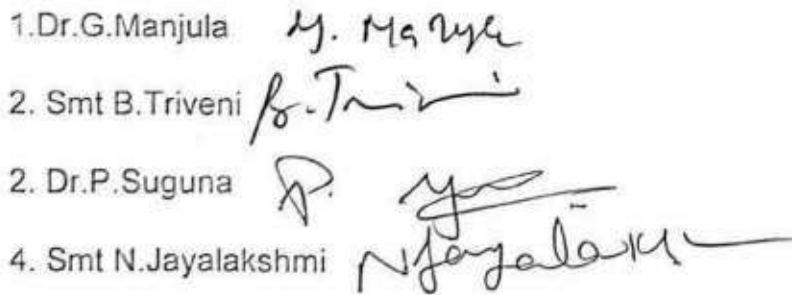 1.Dr.G.Manjula
2. Smt B.Triveni B.Triveni
2. Dr.P.Suguna P.
4. Smt N.Jayalakshmi NJayalakshmi